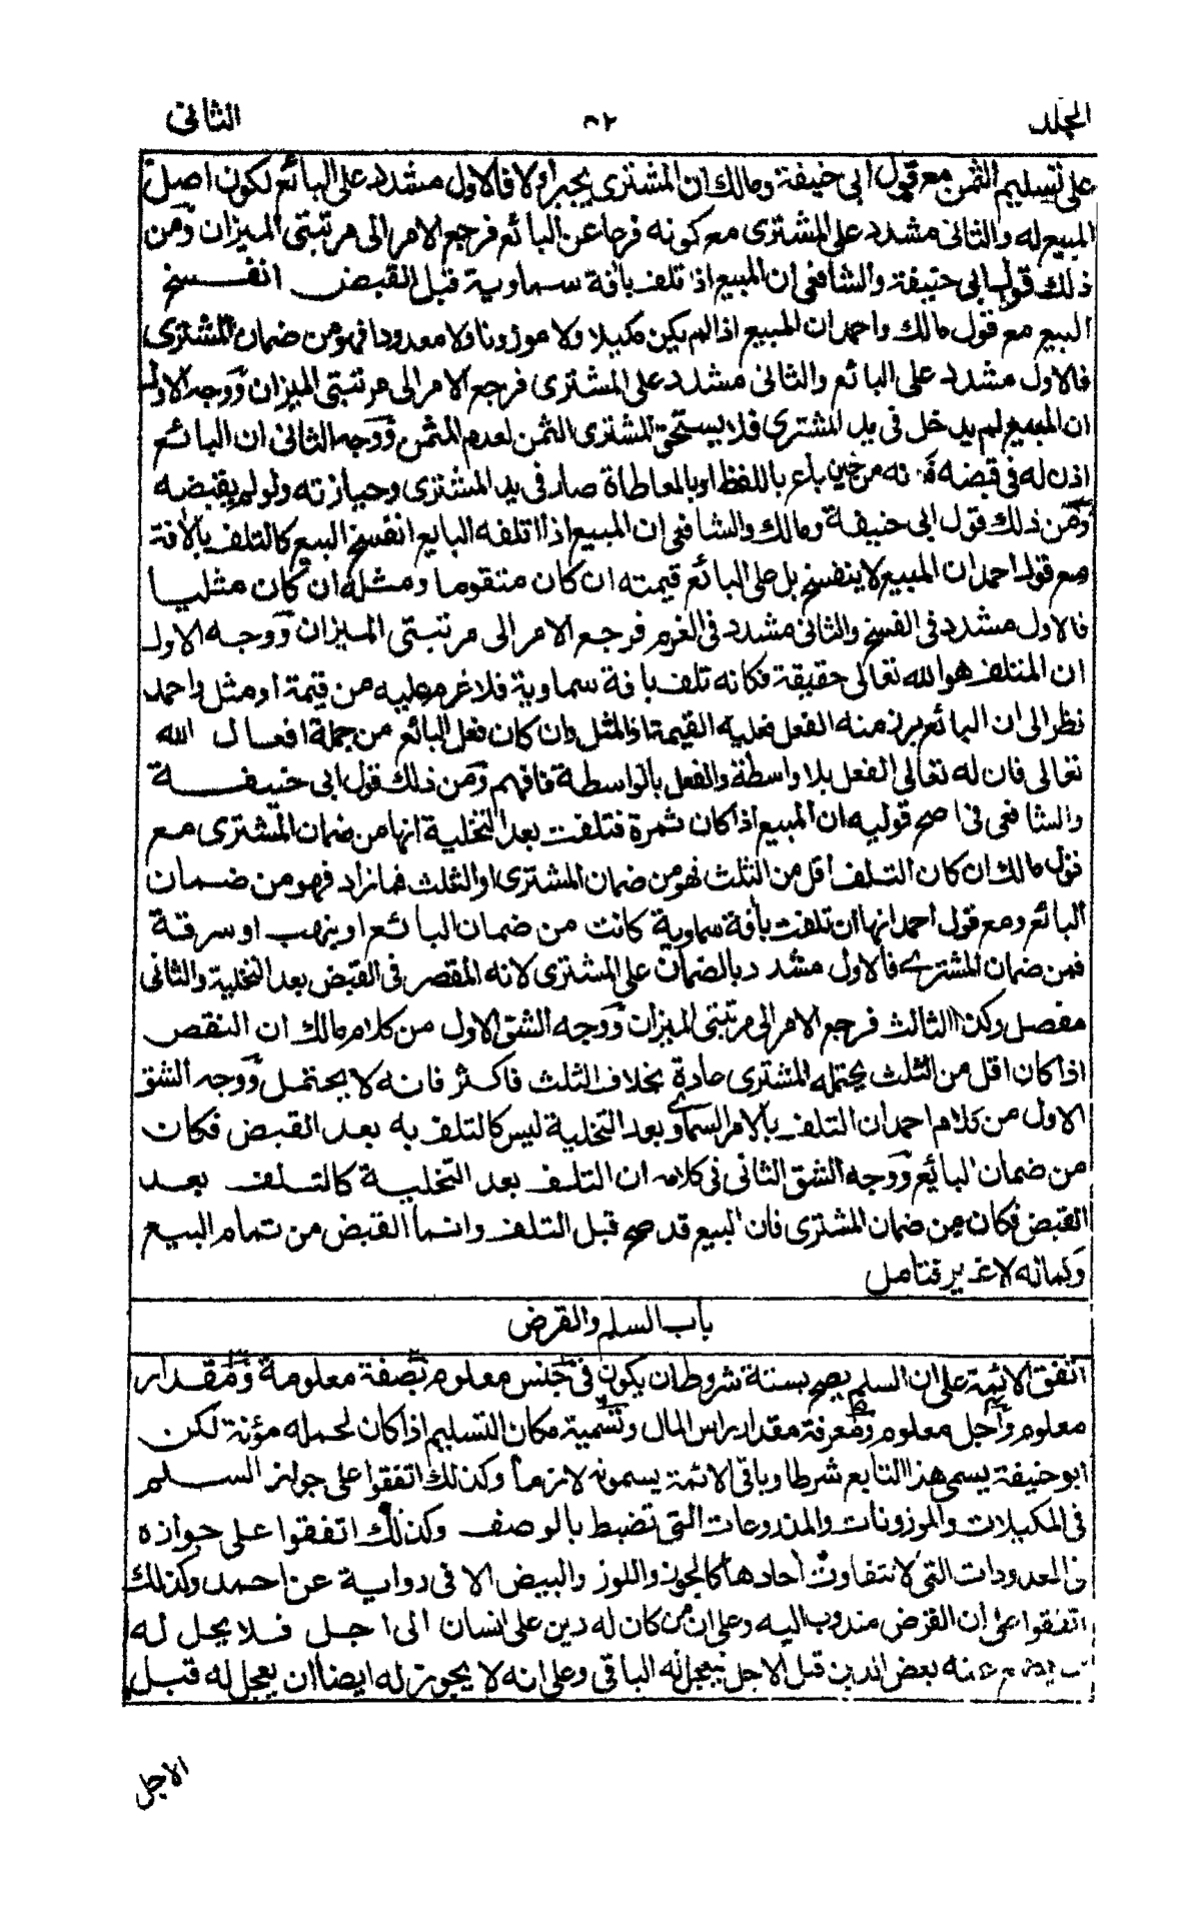 المجلد ٥٢ الثانى
على تسليم الثمن مع قول ابى حنيفة ومالك ان المشترى يجبر اولا فالاول مشدد على البائع لكون اصل
المبيع له والثانى مشدد على المشترى مع كونه فرعا عن البائع فرجع الامر الى مرتبتى الميزان ومن
ذلك قول ابى حنيفة والشافعى ان المبيع اذا تلف بآفة سماوية قبل القبض انفسخ
البيع مع قول مالك واحمد ان المبيع اذا لم يكن مكيلا ولا موزونا ولا معدودا فهو من ضمان المشترى
فالاول مشدد على البائع والثانى مشدد على المشترى فرجع الامر الى مرتبتى الميزان ووجه الاول
ان المبيع لم يدخل فى يد المشترى فلا يستحق المشترى الثمن لعدم المثمن ووجه الثانى ان البائع
اذن له فى قبضه من حين باع باللفظ او بالمعاطاة صار فى يد المشترى وحيازته ولو لم يقبضه
ومن ذلك قول ابى حنيفة ومالك والشافعى ان المبيع اذا اتلفه البايع انفسخ البيع كالتلف بالآفة
مع قول احمد ان المبيع لا ينفسخ بل على البائع قيمته ان كان متقوما ومثله ان كان مثليا
فالاول مشدد فى الفسخ والثانى مشدد فى الغرم فرجع الامر الى مرتبتى الميزان ووجه الاول
ان المتلف هو الله تعالى حقيقة فكانه تلف بافة سماوية فلا غرم عليه من قيمة او مثل واحمد
نظر الى ان البائع برز منه الفعل فعليه القيمة او المثل وان كان فعل البائع من جملة افعال الله
تعالى فان له تعالى الفعل بلا واسطة والفعل بالواسطة فافهم ومن ذلك قول ابى حنيفة
والشافعى فى اصح قوليه ان المبيع اذا كان ثمرة فتلفت بعد التخلية انها من ضمان المشترى مع
قول مالك ان كان التلف اقل من الثلث فهو من ضمان المشترى او الثلث فما زاد فهو من ضمان
البائع ومع قول احمد انها ان تلفت بأفة سماوية كانت من ضمان البائع او بنهب او سرقة
فمن ضمان المشترى فالاول مشدد بالضمان على المشترى لانه المقصر فى القبض بعد التخلية والثانى
مفصل وكذا الثالث فرجع الامر الى مرتبتى الميزان ووجه الشق الاول من كلام مالك ان النقص
اذا كان اقل من الثلث يحتمله المشترى عادة بخلاف الثلث فاكثر فانه لا يحتمل ووجه الشق
الاول من كلام احمد ان التلف بالامر السماوى بعد التخلية ليس كالتلف به بعد القبض فكان
من ضمان البايع ووجه الشق الثانى فى كلامه ان التلف بعد التخلية كالتلف بعد
القبض فكان من ضمان المشترى فان البيع قد صح قبل التلف وانما القبض من تمام البيع
وكماله لا غير فتامل
باب السلم والقرض
اتفق الائمة على ان السلم يصح بستة شروط ان يكون فى جنس معلوم بصفة معلومة ومقدار
معلوم واجل معلوم ومعرفة مقدار راس المال وتسمية مكان التسليم اذا كان لحمله مؤنة لكن
ابو حنيفة يسمى هذا التابع شرطا وباقى الائمة يسمونه لازما وكذلك اتفقوا على جواز السلم
فى المكيلات والموزونات والمذروعات التى تضبط بالوصف وكذلك اتفقوا على جوازه
فى المعدودات التى لا تتفاوت آحادها كالجوز واللوز والبيض الا فى رواية عن احمد وكذلك
اتفقوا على ان القرض مندوب اليه وعلى ان من كان له دين على انسان الى اجل فلا يحل له
ان يضع عنه بعض الدين قبل الاجل ليعجل له الباقى وعلى انه لا يجوز له ايضا ان يعجل له قبل
الاجل